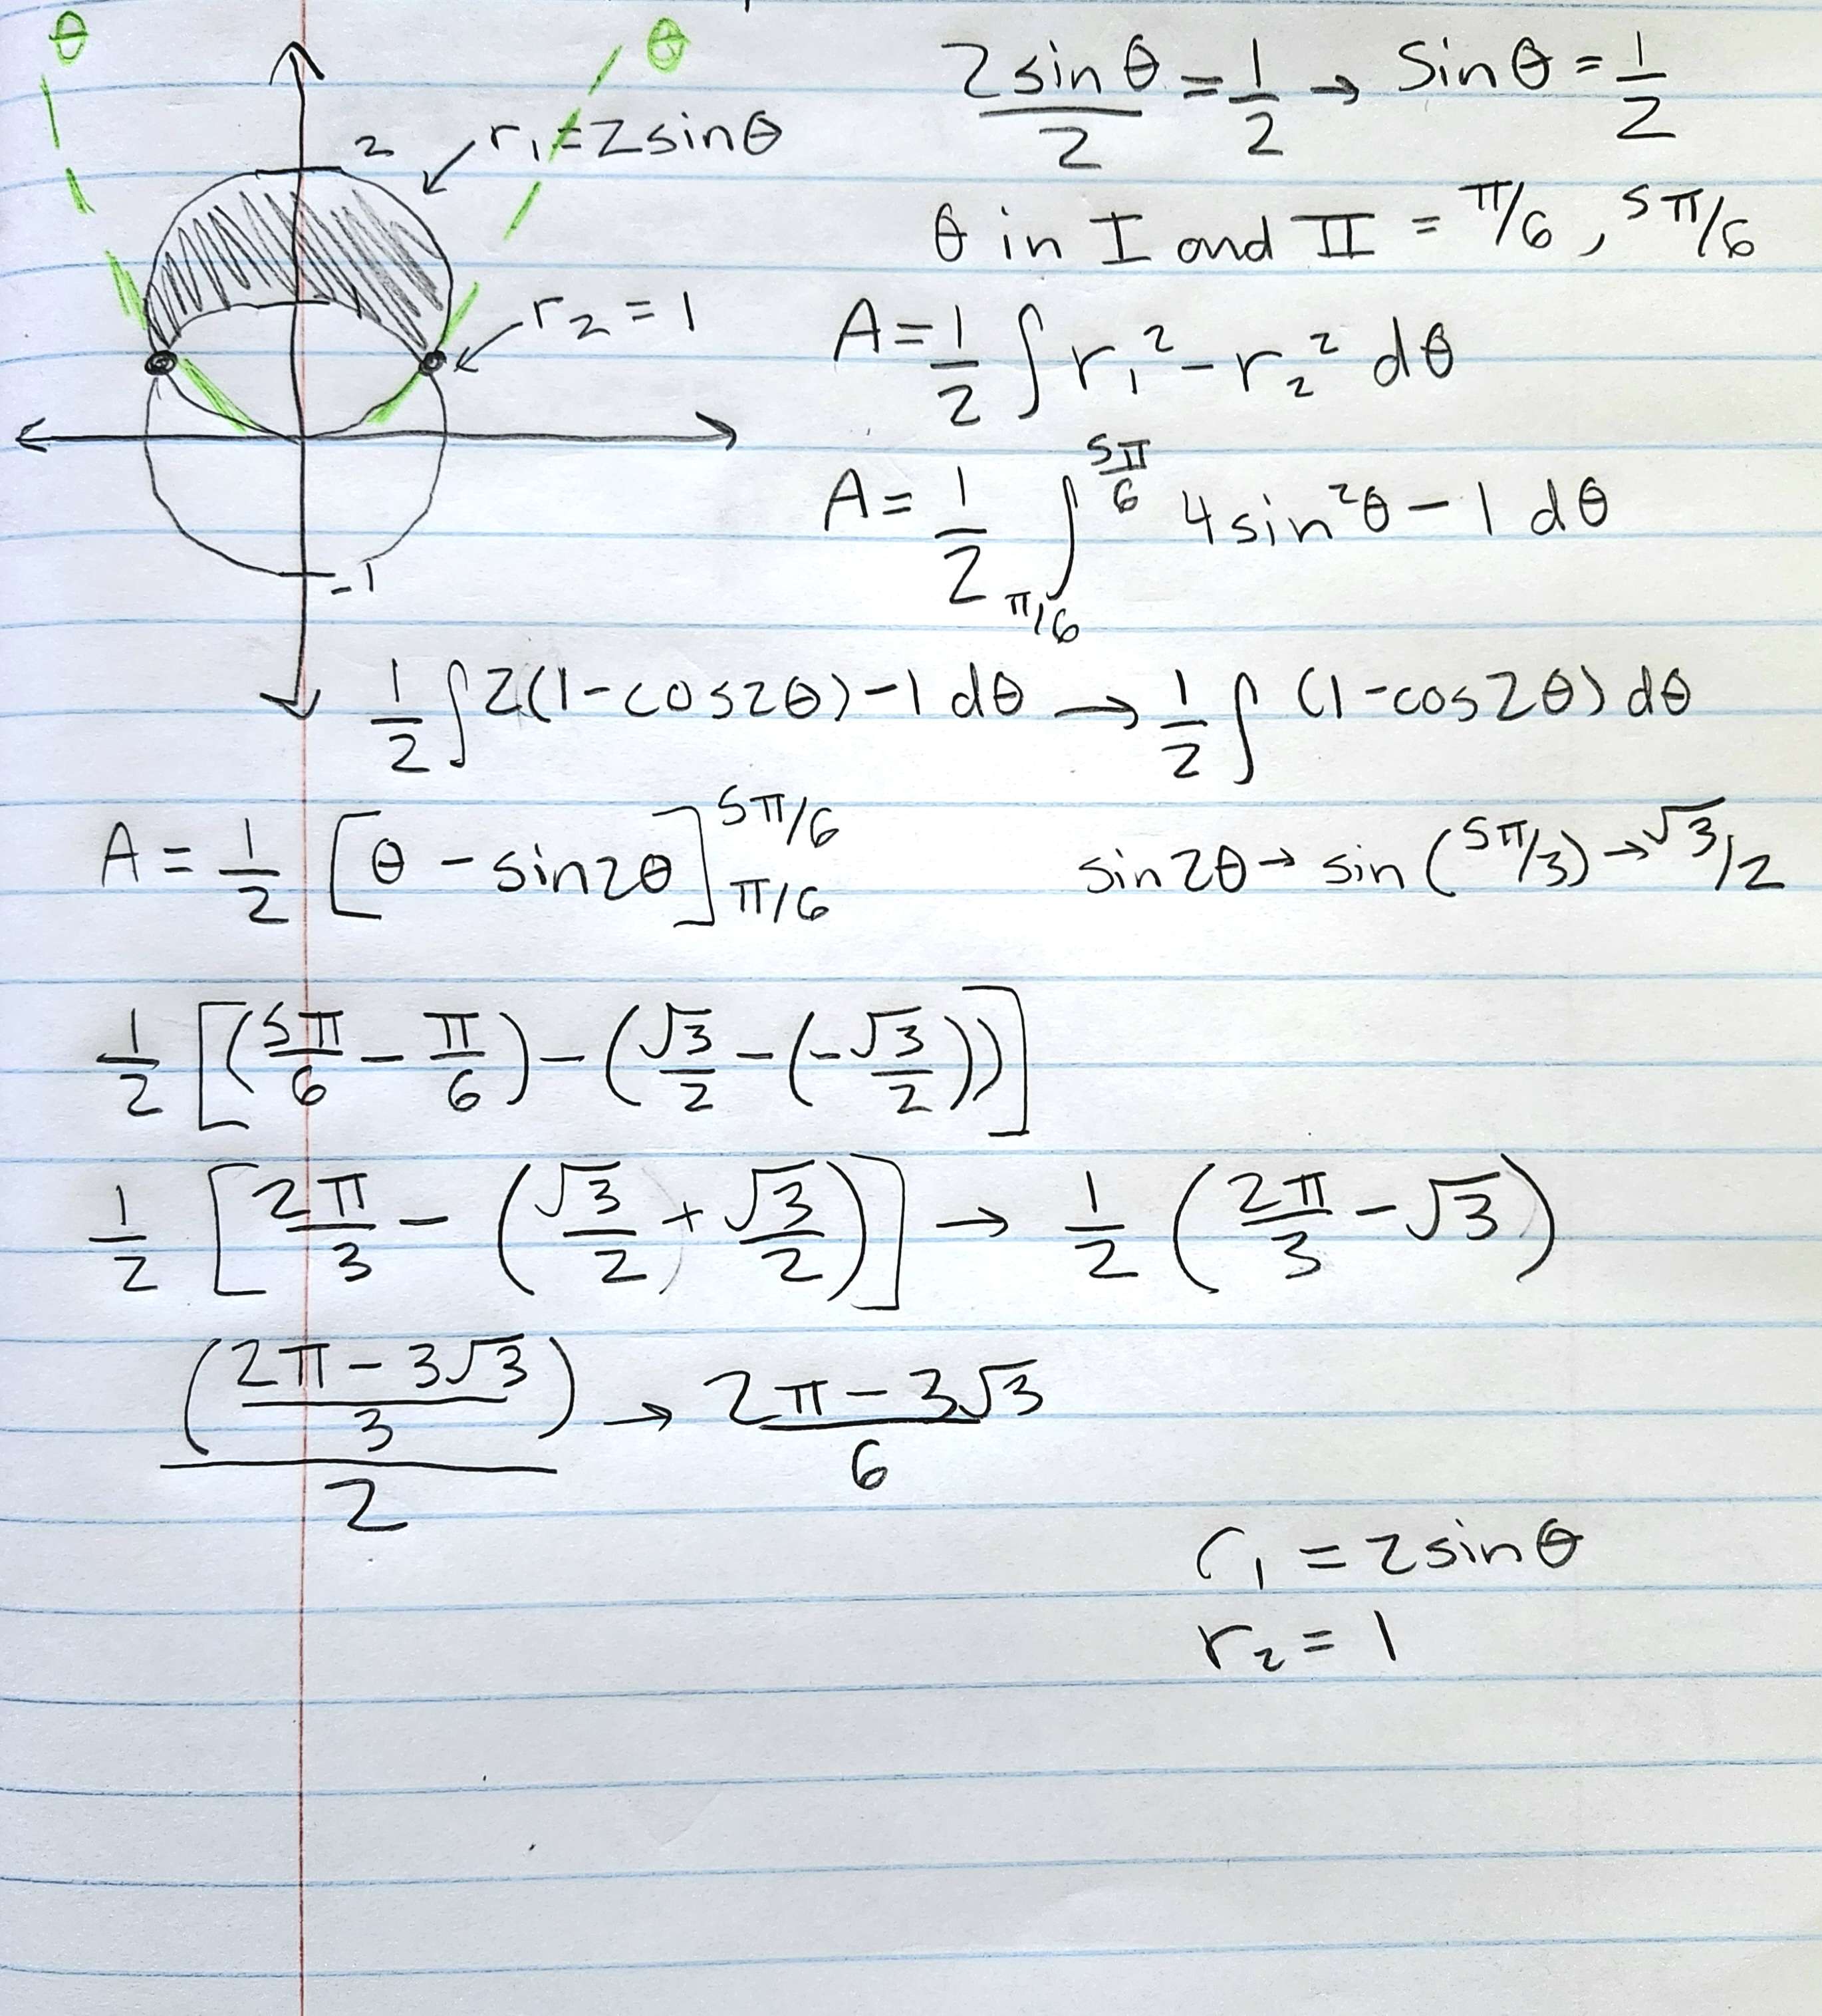 θ
θ
2
r₁ = 2sinθ
r₂ = 1
-1
2sinθ/2 = 1/2 → sinθ = 1/2
θ in I and II = π/6, 5π/6
A = 1/2 ∫ r₁² - r₂² dθ
A = 1/2 ∫_{π/6}^{5π/6} 4sin²θ - 1 dθ
1/2 ∫ 2(1-cos2θ) - 1 dθ → 1/2 ∫ (1-cos2θ) dθ
A = 1/2 [θ - sin2θ]_{π/6}^{5π/6}
sin2θ → sin(5π/3) → √3/2
1/2 [(5π/6 - π/6) - (√3/2 - (-√3/2))]
1/2 [2π/3 - (√3/2 + √3/2)] → 1/2 (2π/3 - √3)
((2π - 3√3)/3)/2 → (2π - 3√3)/6
r₁ = 2sinθ
r₂ = 1